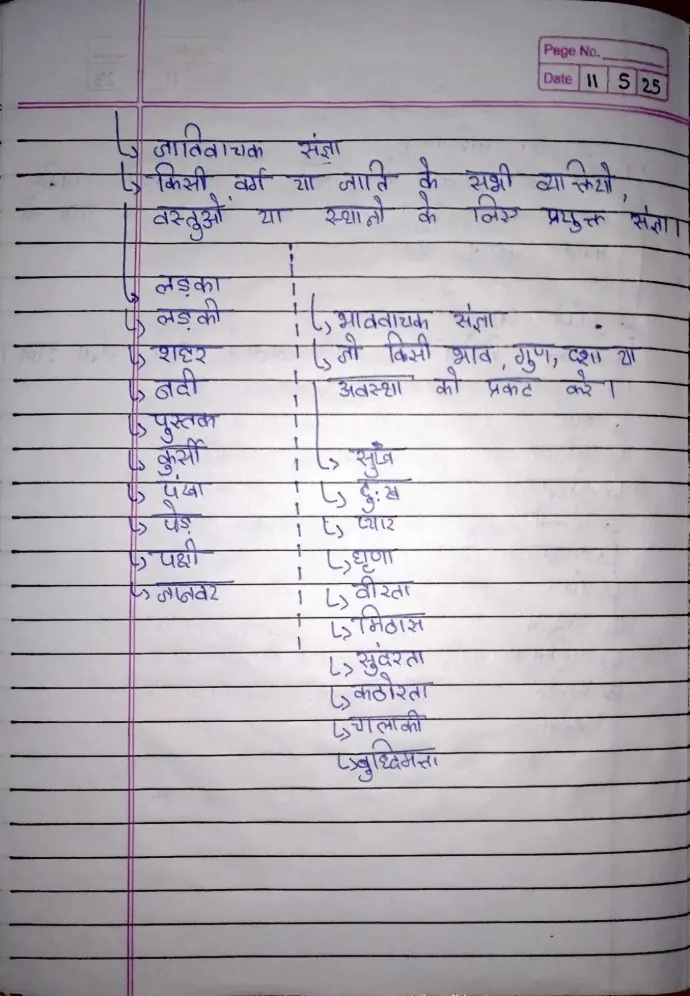 Page No.
Date 11 5 25
जातिवाचक संज्ञा
किसी वर्ग या जाति के सभी व्यक्तियों,
वस्तुओं या स्थानों के लिए प्रयुक्त संज्ञा।
लड़का
लड़की
शहर
नदी
पुस्तक
कुर्सी
पंखा
पेड़
पक्षी
जानवर
भाववाचक संज्ञा
जो किसी भाव, गुण, दशा या
अवस्था को प्रकट करे।
सुख
दुःख
प्यार
घृणा
वीरता
मिठास
सुंदरता
कठोरता
चालाकी
बुध्दिमत्ता